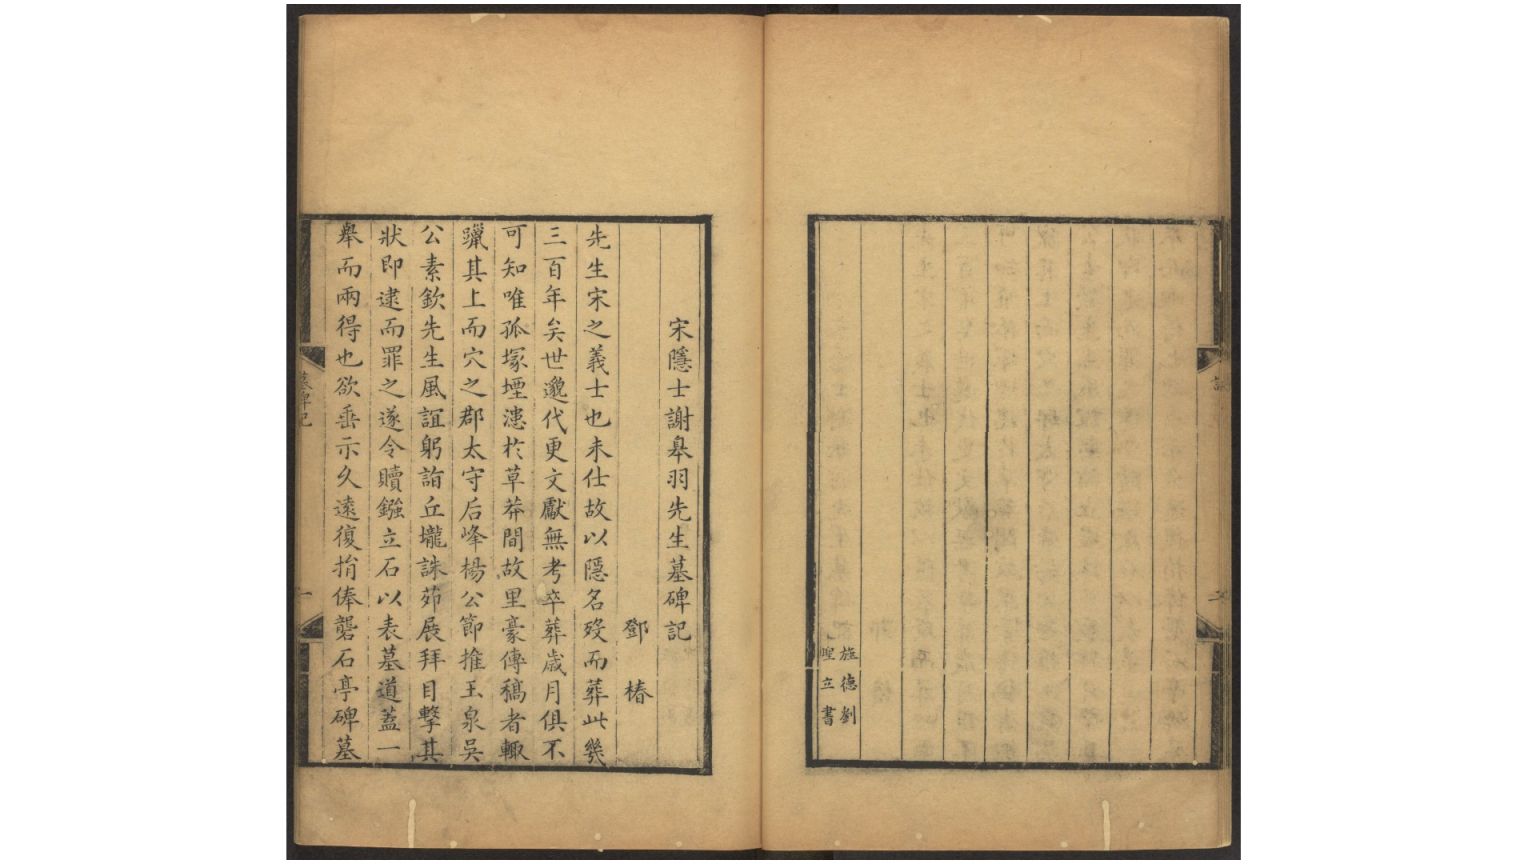 旌德劉
煌立書
宋隱士謝皋羽先生墓碑記
鄧椿
先生宋之義士也未仕故以隱名歿而葬此幾
三百年矣世邈代更文獻無考卒葬歲月俱不
可知唯孤塚堙漶於草莽間故里豪傳稿者輙
躐其上而穴之郡太守后峰楊公節推玉泉吳
公素欽先生風誼躬詣丘壠誅茆展拜目擊其
狀即逮而罪之遂令贖鏹立石以表墓道葢一
舉而兩得也欲垂示久遠復捐俸礲石亭碑墓
墓碑記
一